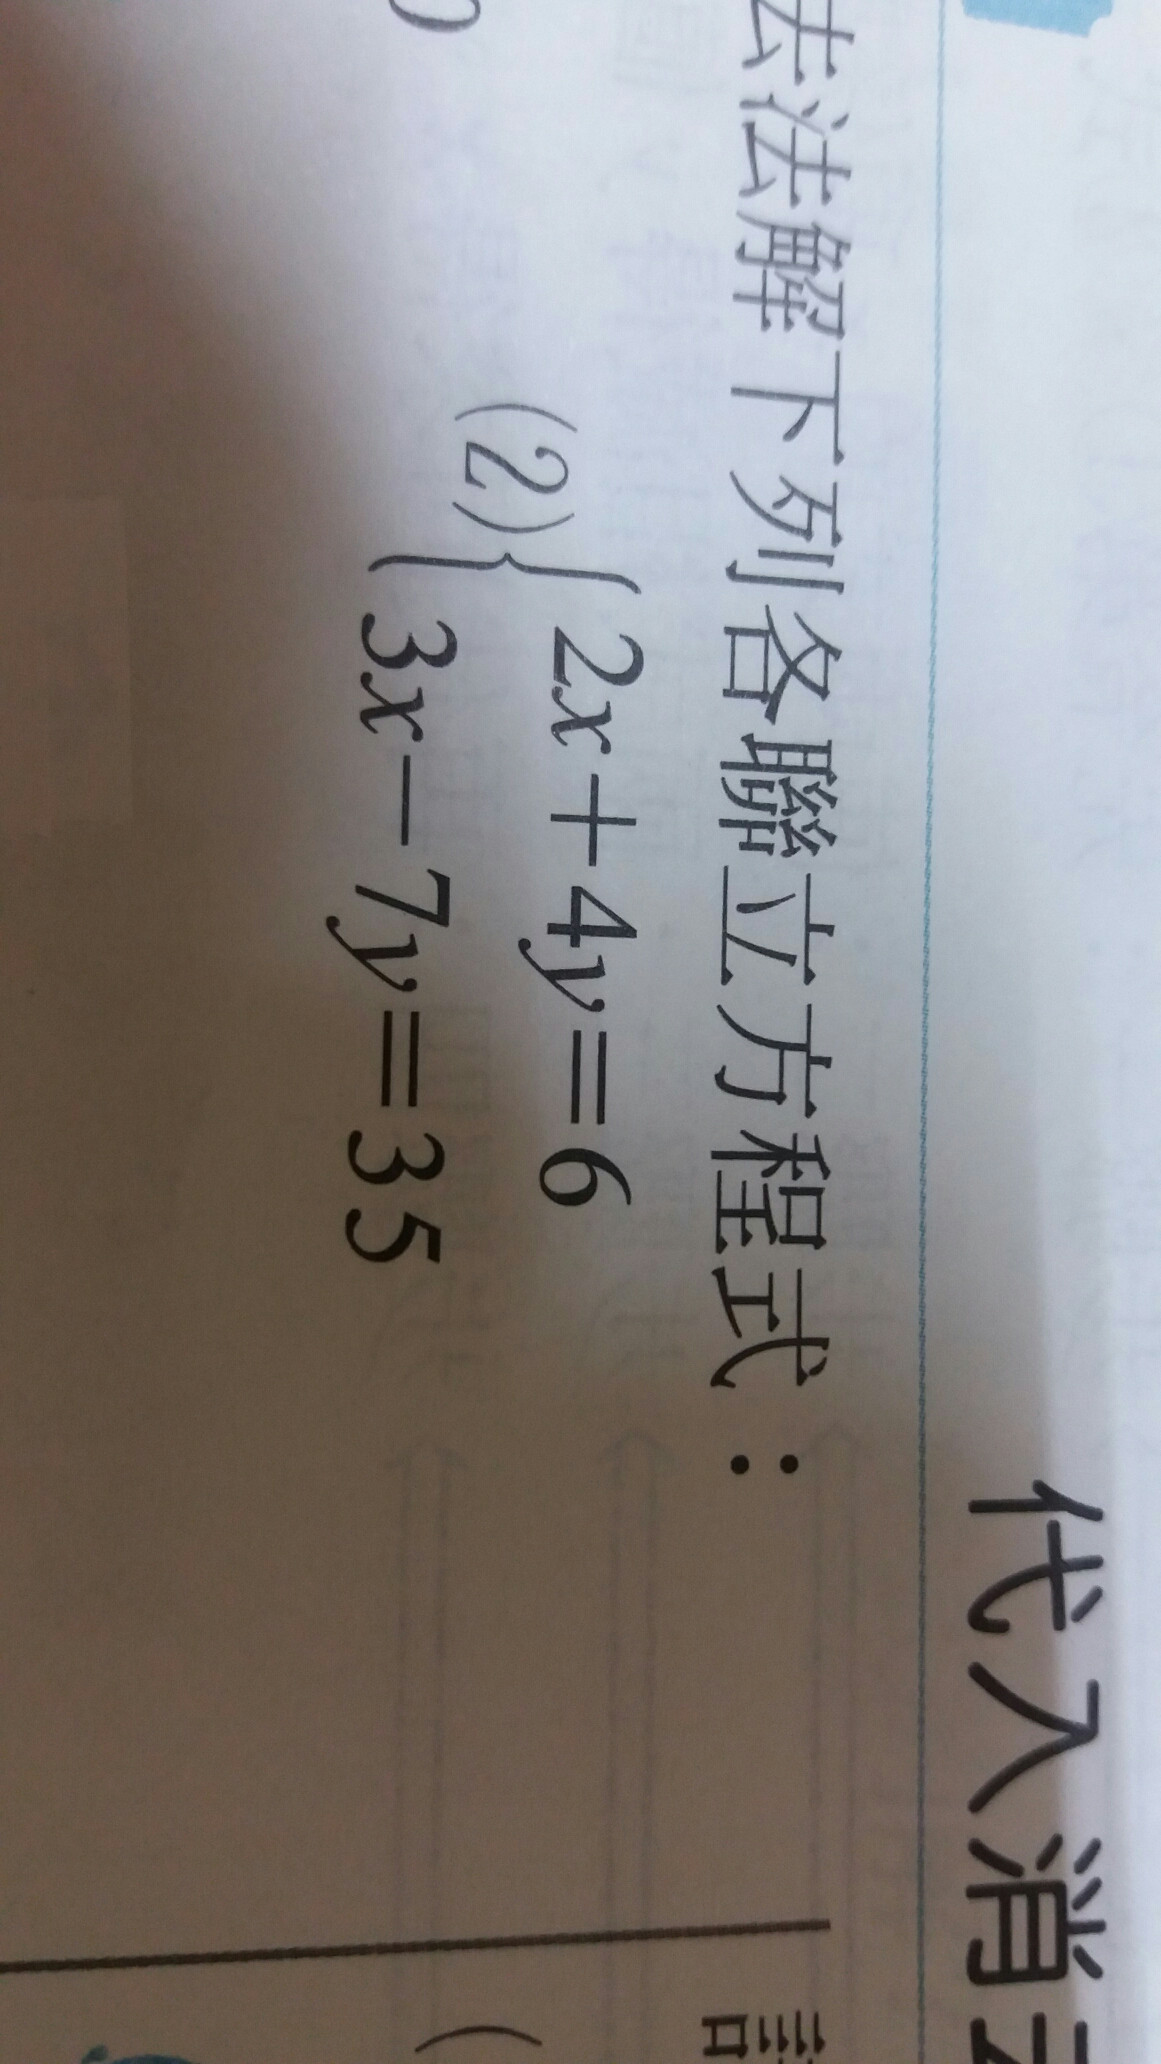 代入消去
法解下列各聯立方程式：
(2) { 2x+4y=6
3x-7y=35